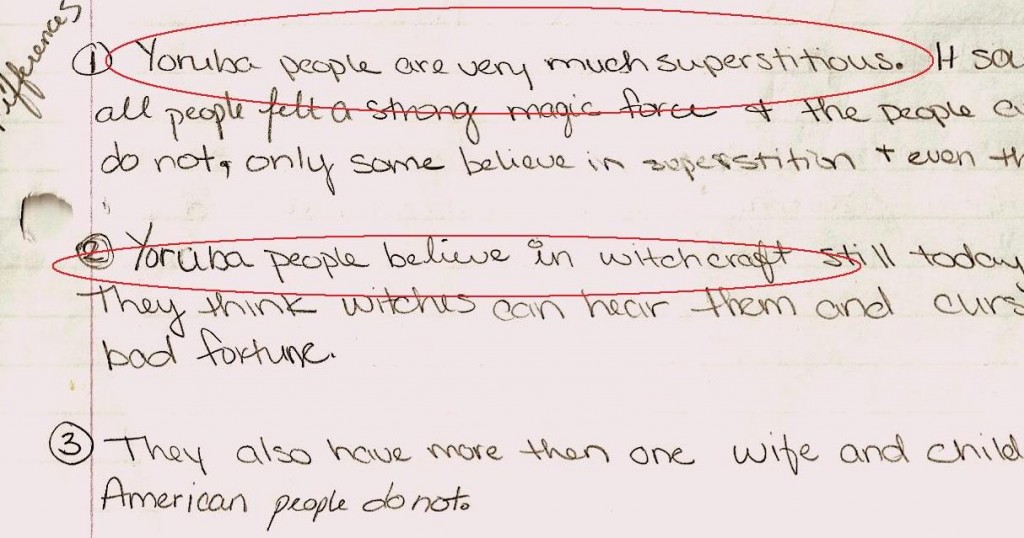 Differences
① Yoruba people are very much superstitious. It sou
all people felt a strong magic force & the people a
do not, only some believe in superstition + even th
② Yoruba people believe in witchcraft still today
They think witches can hear them and curs
bad fortune.
③ They also have more then one wife and child
American people do not.